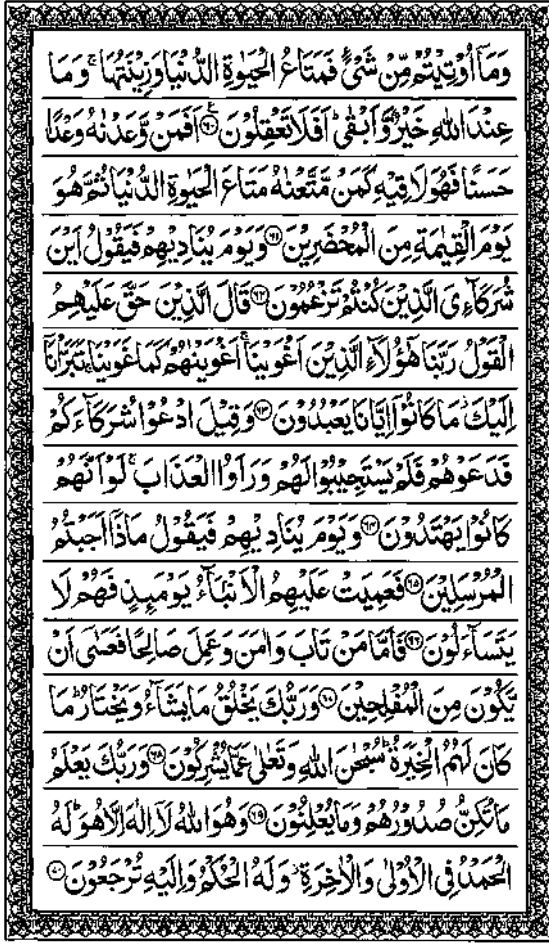 وَمَآ اُوْتِيْتُمْ مِّنْ شَیْءٍ فَمَتَاعُ الْحَيٰوةِ الدُّنْيَا وَزِيْنَتُهَا ۚ وَمَا
عِنْدَ اللّٰهِ خَيْرٌ وَّاَبْقٰى ؕ اَفَلَا تَعْقِلُوْنَ ۟ۧ۶۰ اَفَمَنْ وَّعَدْنٰهُ وَعْدًا
حَسَنًا فَهُوَ لَاقِيْهِ كَمَنْ مَّتَّعْنٰهُ مَتَاعَ الْحَيٰوةِ الدُّنْيَا ثُمَّ هُوَ
يَوْمَ الْقِيٰمَةِ مِنَ الْمُحْضَرِيْنَ ۶۱ وَيَوْمَ يُنَادِيْهِمْ فَيَقُوْلُ اَيْنَ
شُرَكَآءِیَ الَّذِيْنَ كُنْتُمْ تَزْعُمُوْنَ ۶۲ قَالَ الَّذِيْنَ حَقَّ عَلَيْهِمُ
الْقَوْلُ رَبَّنَا هٰٓؤُلَآءِ الَّذِيْنَ اَغْوَيْنَا ۚ اَغْوَيْنٰهُمْ كَمَا غَوَيْنَا ۚ تَبَرَّاْنَآ
اِلَيْكَ ؗ مَا كَانُوْٓا اِيَّانَا يَعْبُدُوْنَ ۶۳ وَقِيْلَ ادْعُوْا شُرَكَآءَكُمْ
فَدَعَوْهُمْ فَلَمْ يَسْتَجِيْبُوْا لَهُمْ وَرَاَوُا الْعَذَابَ ۚ لَوْ اَنَّهُمْ
كَانُوْا يَهْتَدُوْنَ ۶۴ وَيَوْمَ يُنَادِيْهِمْ فَيَقُوْلُ مَاذَآ اَجَبْتُمُ
الْمُرْسَلِيْنَ ۶۵ فَعَمِيَتْ عَلَيْهِمُ الْاَنْۢبَآءُ يَوْمَئِذٍ فَهُمْ لَا
يَتَسَآءَلُوْنَ ۶۶ فَاَمَّا مَنْ تَابَ وَاٰمَنَ وَعَمِلَ صَالِحًا فَعَسٰٓى اَنْ
يَّكُوْنَ مِنَ الْمُفْلِحِيْنَ ۶۷ وَرَبُّكَ يَخْلُقُ مَا يَشَآءُ وَيَخْتَارُ ؕ مَا
كَانَ لَهُمُ الْخِيَرَةُ ؕ سُبْحٰنَ اللّٰهِ وَتَعٰلٰى عَمَّا يُشْرِكُوْنَ ۶۸ وَرَبُّكَ يَعْلَمُ
مَا تُكِنُّ صُدُوْرُهُمْ وَمَا يُعْلِنُوْنَ ۶۹ وَهُوَ اللّٰهُ لَآ اِلٰهَ اِلَّا هُوَ ؕ لَهُ
الْحَمْدُ فِی الْاُوْلٰى وَالْاٰخِرَةِ ؗ وَلَهُ الْحُكْمُ وَاِلَيْهِ تُرْجَعُوْنَ ۷۰